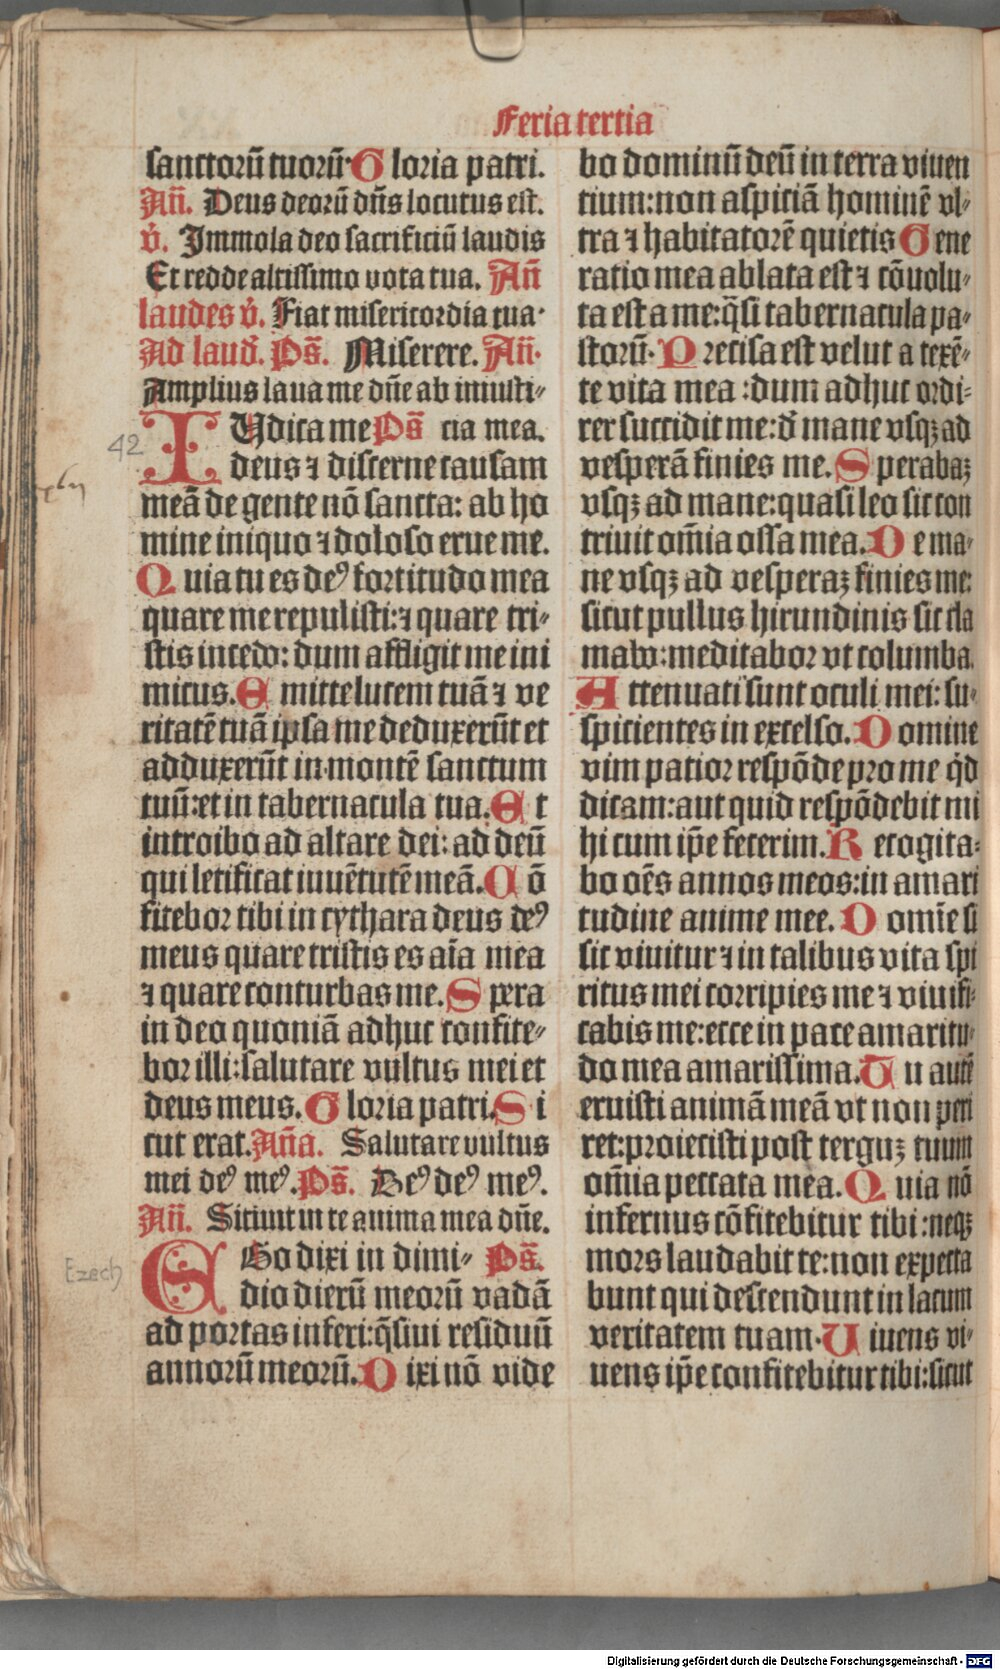 Feria tertia
sanctorū tuorū. Gloria patri.
Añ. Deus deorū dn̄s locutus est.
v̄. Immola deo sacrificiū laudis
Et redde altissimo vota tua. Añ
laudes v̄. Fiat misericordia tua.
Ad laud̄. Ps̄. Miserere. Añ.
Amplius laua me dn̄e ab iniusti⸗
IUdica me Ps̄ cia mea.
deus ⁊ discerne causam
meā de gente nō sancta: ab ho
mine iniquo ⁊ doloso erue me.
Quia tu es deꝰ fortitudo mea
quare me repulisti: ⁊ quare tri⸗
stis incedo: dum affligit me ini
micus. Emitte lucem tuā ⁊ ve
ritatē tuā ipsa me deduxerūt et
adduxerūt in montē sanctum
tuū: et in tabernacula tua. Et
introibo ad altare dei: ad deū
qui letificat iuuētutē meā. Cō
fitebor tibi in cythara deus deꝰ
meus quare tristis es aīa mea
⁊ quare conturbas me. Spera
in deo quoniā adhuc confite⸗
bor illi: salutare vultus mei et
deus meus. Gloria patri. Si
cut erat. Aña. Salutare vultus
mei deꝰ meꝰ. Ps̄. Deꝰ deꝰ meꝰ.
Añ. Sitiuit in te anima mea dn̄e.
EGo dixi in dimi⸗ Ps̄.
dio dierū meorū vadā
ad portas inferi: q̄siui residuū
annorū meorū. Dixi nō vide
bo dominū deū in terra viuen
tium: non aspiciā hominē vl⸗
tra ⁊ habitatorē quietis Gene
ratio mea ablata est ⁊ cōuolu⸗
ta est a me: q̄si tabernacula pa⸗
storū. Precisa est velut a texē⸗
te vita mea: dum adhuc ordi⸗
rer succidit me: d̄ mane vsqꝫ ad
vesperā finies me. Sperabaꝫ
vsqꝫ ad mane: quasi leo sic con
triuit om̄ia ossa mea. De ma⸗
ne vsqꝫ ad vesperaꝫ finies me:
sicut pullus hirundinis sic cla
mabo: meditabor vt columba.
Attenuati sunt oculi mei: su⸗
spicientes in excelso. Domine
vim patior respōde pro me qd̄
dicam: aut quid respōdebit mi
hi cum ip̄e fecerim. Recogita⸗
bo oēs annos meos: in amari
tudine anime mee. Domīe si
sic viuitur ⁊ in talibus vita spi
ritus mei corripies me ⁊ viuifi⸗
cabis me: ecce in pace amaritu⸗
do mea amarissima. Tu autē
eruisti animā meā vt non peri
ret: proiecisti post terguꝫ tuum
om̄ia peccata mea. Quia nō
infernus cōfitebitur tibi: neqꝫ
mors laudabit te: non expecta
bunt qui descendunt in lacum
veritatem tuam. Viuens vi⸗
uens ip̄e confitebitur tibi: sicut
42
Ezech
Digitalisierung gefördert durch die Deutsche Forschungsgemeinschaft - DFG